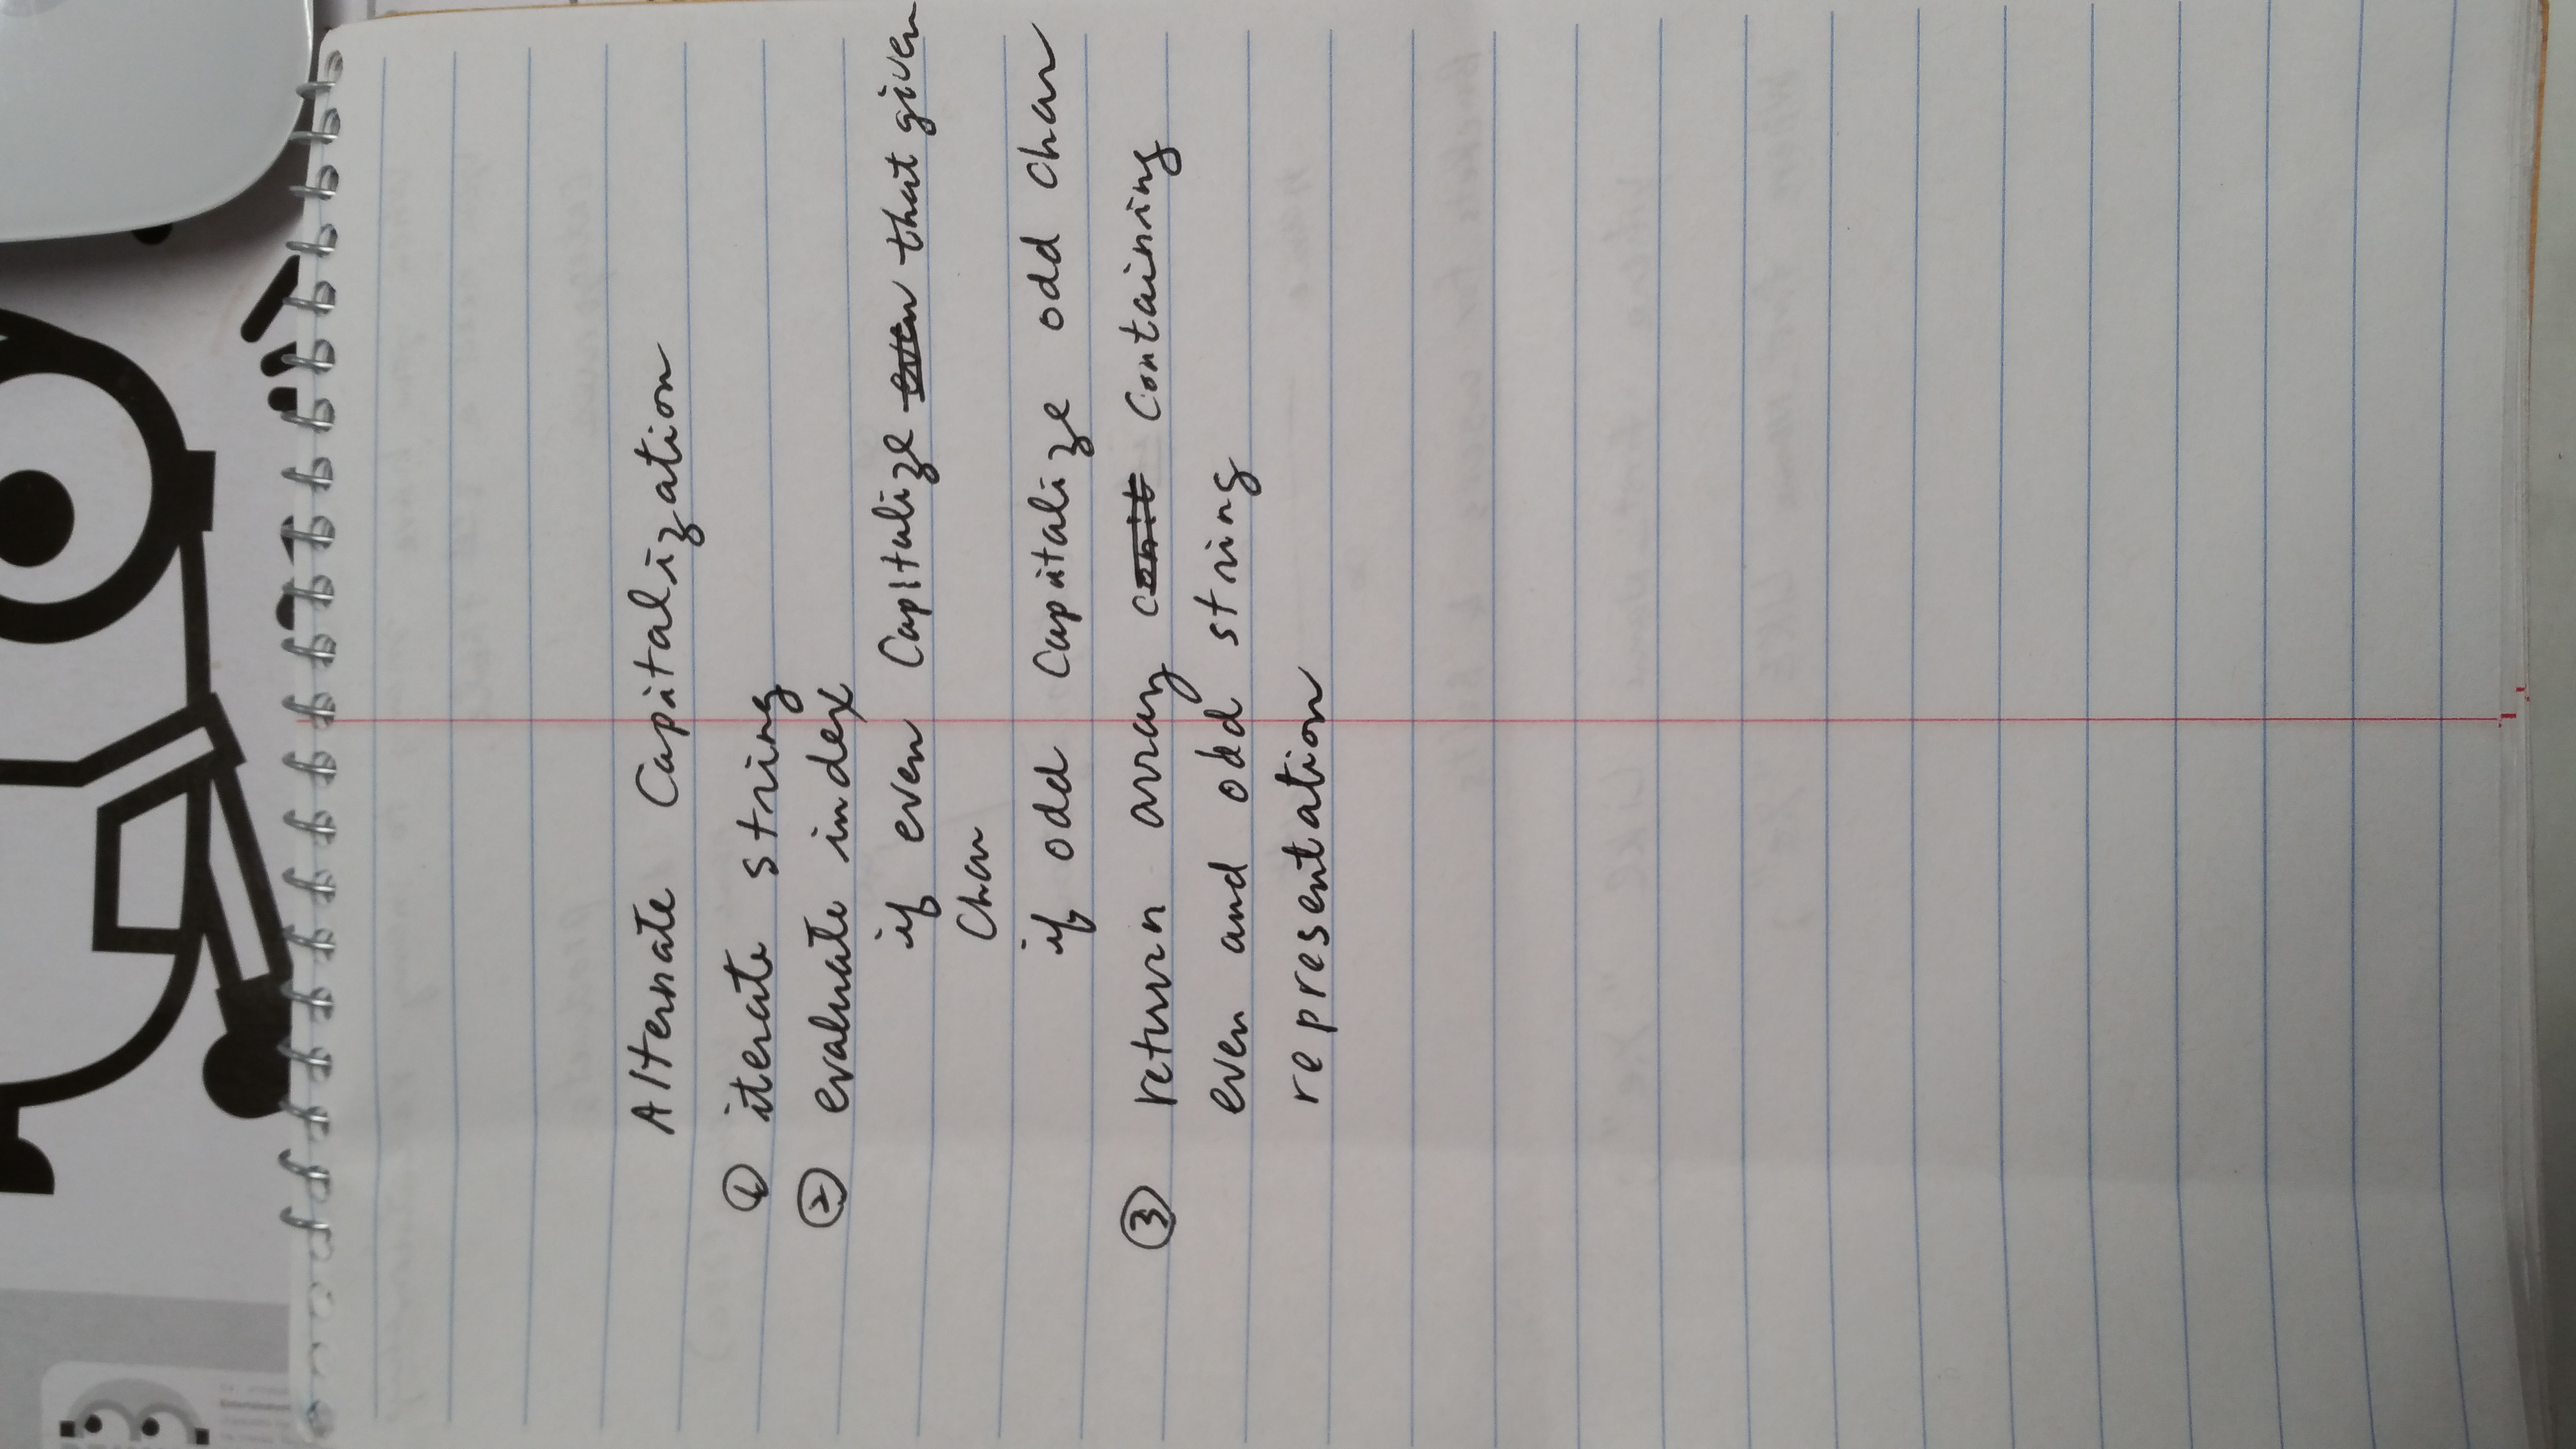 Alternate Capitalization
① iterate string
② evaluate index
if even Capitalize even that given
Char
if odd Capitalize odd Char
③ return array conit Containing
even and odd string
representation